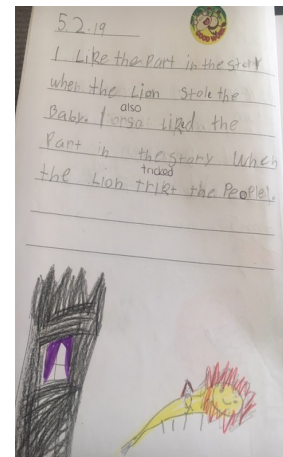 5.2.19
I Like the Part in the story
when the Lion stole the
also
Baby. I orso liked the
Part in the story when
tricked
the Lion trikt the People.